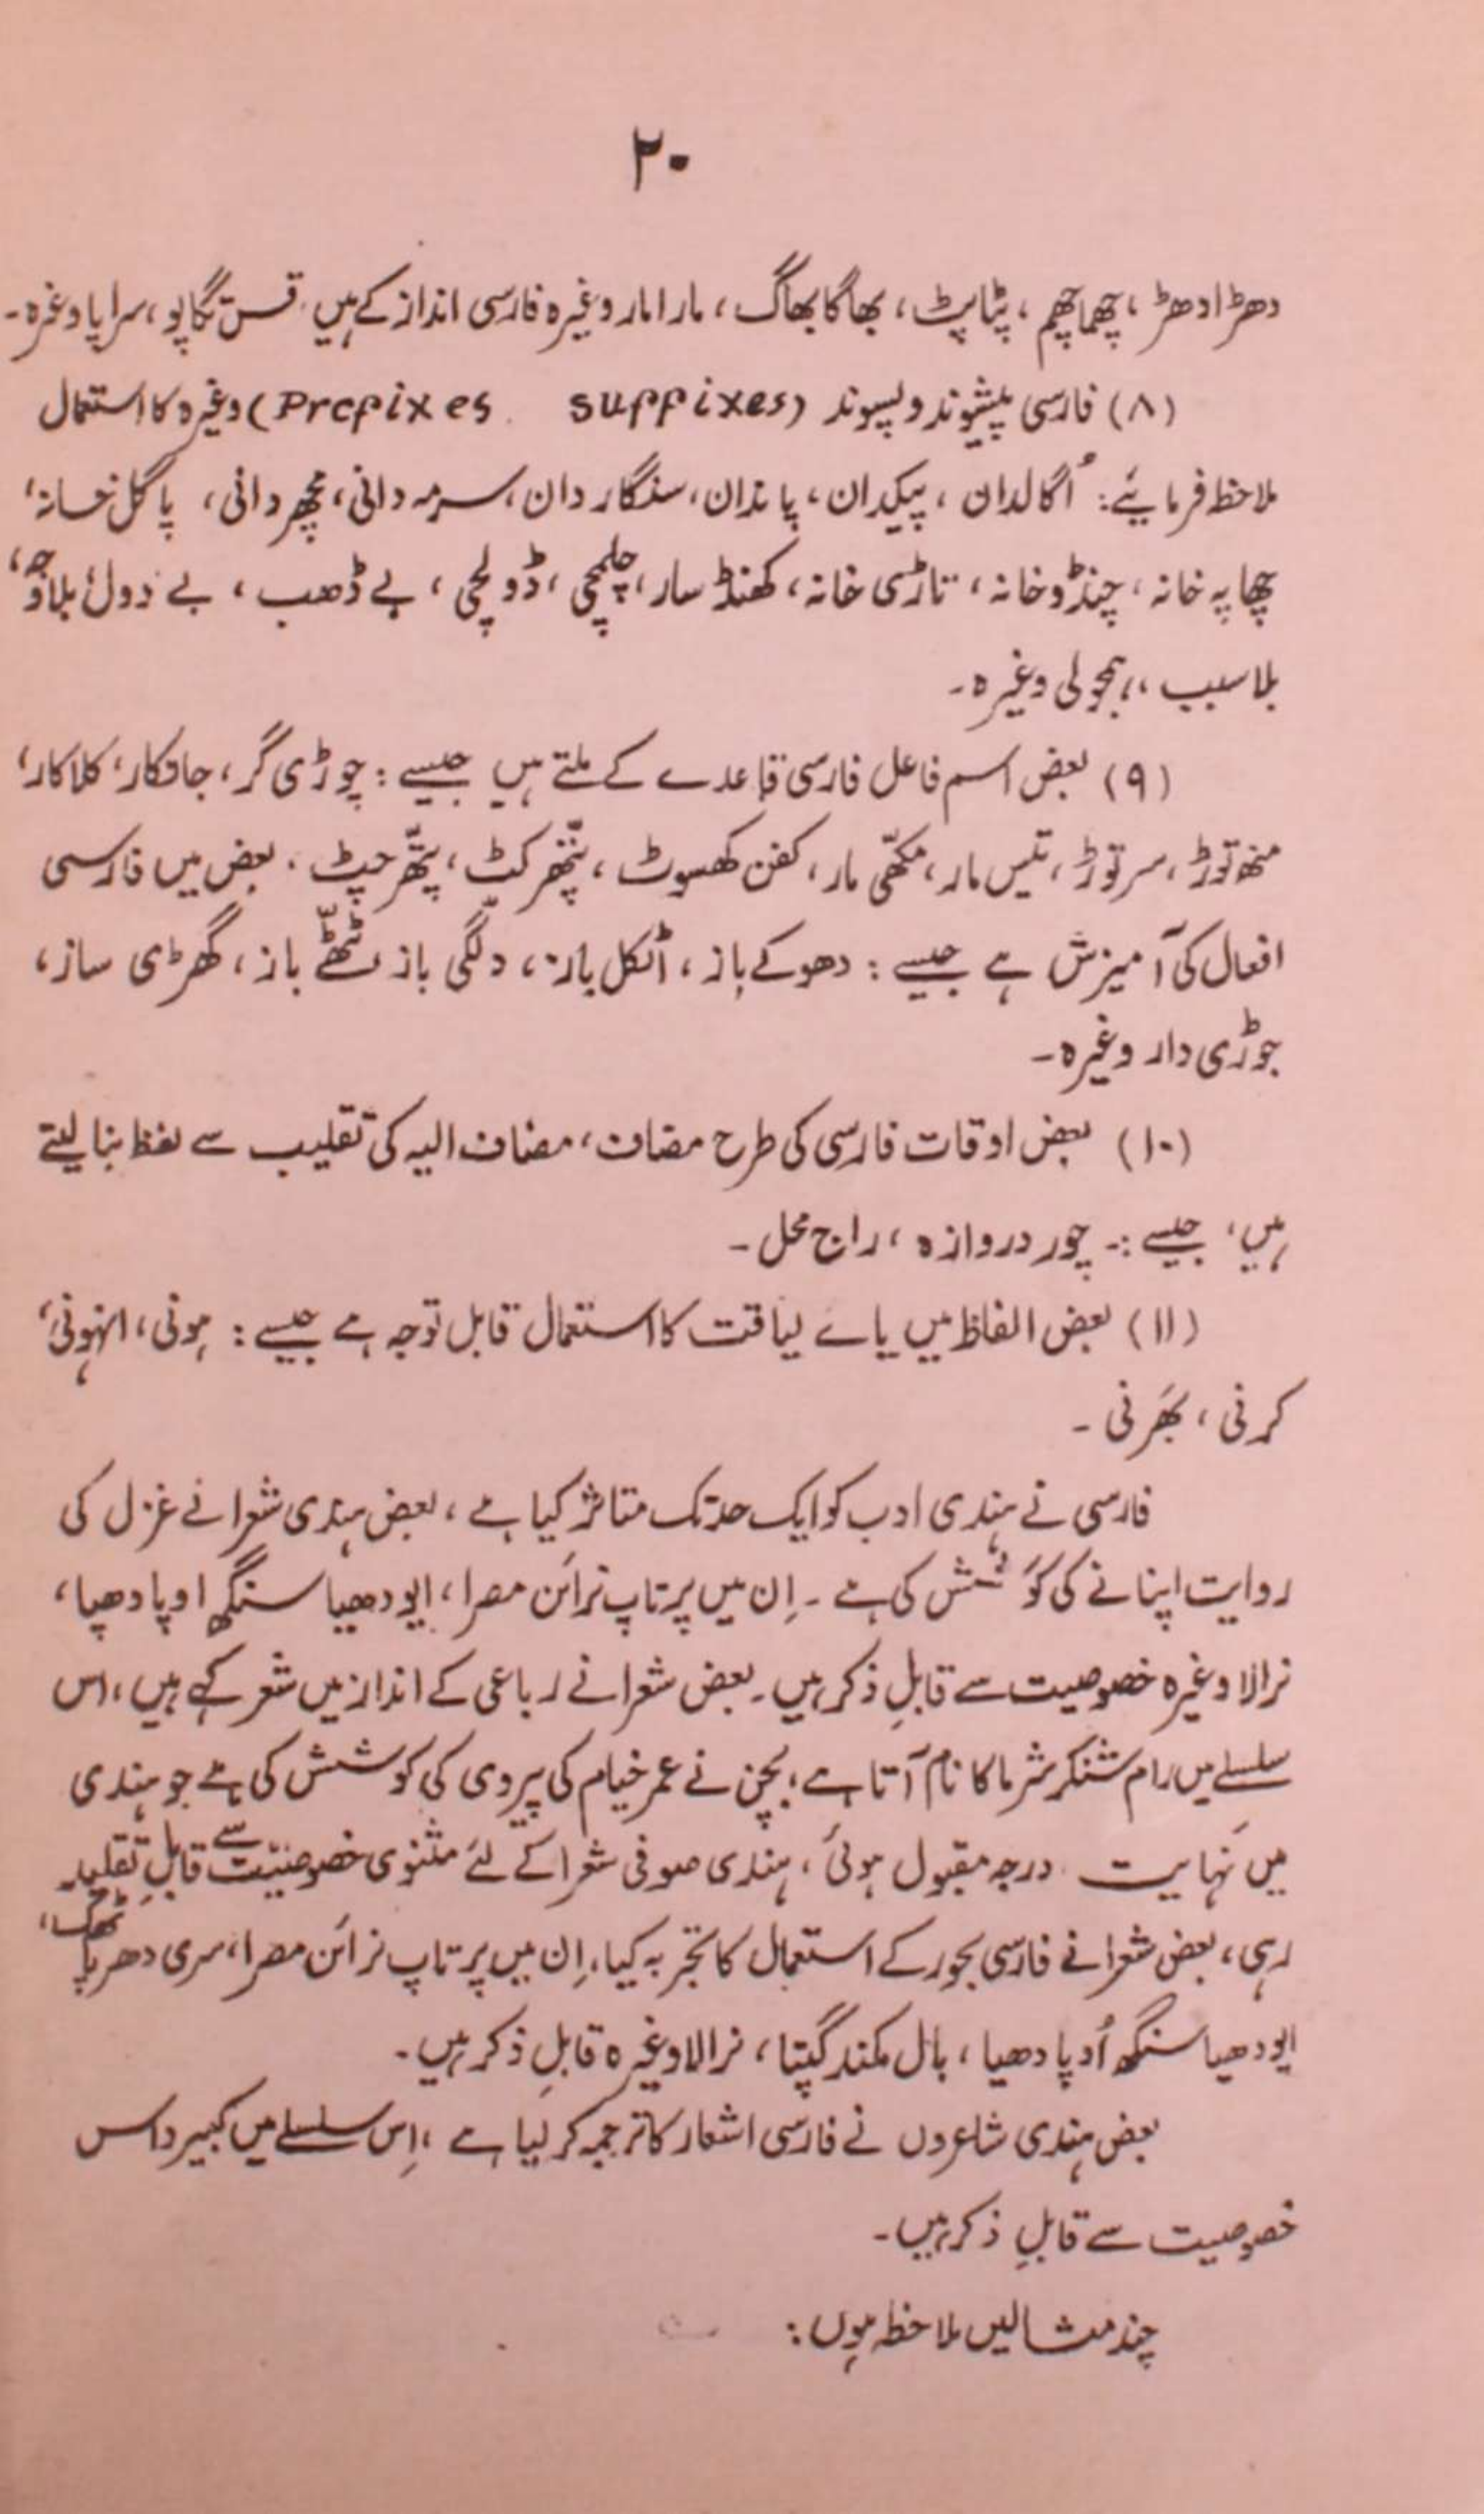 ۲۰
دھڑادھڑ، چھماچھم، پٹاپٹ، بھاگا بھاگ، مارامار وغیرہ فارسی انداز کے ہیں تگاپو، سراپا وغرہ۔
(۸) فارسی پیشوند و پسوند (Prefixes suffixes) وغیرہ کا استعمال
ملاحظ فرمایئے: اُگالدان، پیکدان، پاندان، سنگاردان، سرمہ دانی، مچھر دانی، پاگل خانہ،
چھاپہ خانہ، چنڈو خانہ، تاڑسی خانہ، کھنڈ سار، چلمچی، ڈولچی، بے ڈھب، بے ڈول، بلاوجہ،
بلاسبب، ہمجولی وغیرہ۔
(۹) بعض اسم فاعل فارسی قاعدے کے ملتے ہیں جیسے: چوڑی گر، جانکار، کلاکار،
منھ توڑ، سر توڑ، تیس مار، مکھّی مار، کفن کھسوٹ، پتّھر کٹ، پتّھر چٹ، بعض میں فارسی
افعال کی آمیزش ہے جیسے: دھوکے باز، اٹکل باز، دلّگی باز ٹھٹّے باز، گھڑی ساز،
جوڑی دار وغیرہ۔
(۱۰) بعض اوقات فارسی کی طرح مضاف، مضاف الیہ کی تقلیب سے لفظ بنا لیتے
ہیں، جیسے:۔ چور دروازہ، راج محل۔
(۱۱) بعض الفاظ میں یاے لیاقت کا استعمال قابل توجہ ہے جیسے: ہونی، انہونی،
کرنی، بھَرنی۔
فارسی نے ہندی ادب کو ایک حد تک متاثر کیا ہے، بعض ہندی شعرا نے غزل کی
روایت اپنانے کی کوشش کی ہے۔ اِن میں پرتاپ نرائن مصرا، ایودھیا سنگھ اوپادھیا،
نرالا وغیرہ خصوصیت سے قابلِ ذکر ہیں۔ بعض شعرا نے رباعی کے انداز میں شعر کہے ہیں، اس
سلسلے میں رام شنکر شرما کا نام آتا ہے، بچن نے عمر خیام کی پیروی کی کوشش کی ہے جو ہندی
میں نہایت درجہ مقبول ہوئی، ہندی صوفی شعرا کے لئے مثنوی خصوصیت سے قابلِ تقلید
رہی، بعض شعرا نے فارسی بحور کے استعمال کا تجربہ کیا، اِن میں پرتاپ نرائن مصرا، سری دھر پاٹھک،
ایودھیا سنگھ اُوپادھیا، بال مکند گپتا، نرالا وغیرہ قابلِ ذکر ہیں۔
بعض ہندی شاعروں نے فارسی اشعار کا ترجمہ کر لیا ہے، اِس سلسلے میں کبیر داس
خصوصیت سے قابلِ ذکر ہیں۔
چند مثالیں ملاحظہ ہوں: